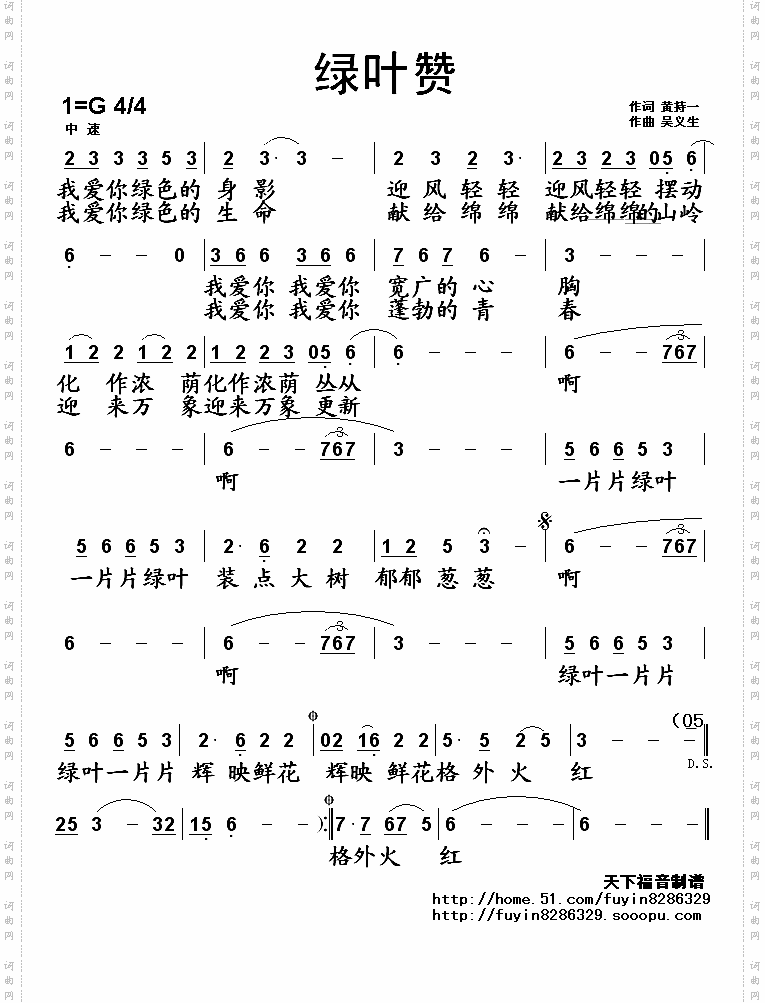 绿叶赞
1=G 4/4
中 速
作词 黄持一
作曲 吴义生
2 3 3 3 5 3 | 2 3· 3 – | 2 3 2 3· | 2 3 2 3 05 6 |
我爱你绿色的 身 影 迎 风 轻 轻 迎风轻轻 摆动
我爱你绿色的 生 命 献 给 绵 绵 献给绵绵的山岭
6 – – 0 | 3 6 6 3 6 6 | 7 6 7 6 – | 3 – – – |
我爱你 我爱你 宽广的 心 胸
我爱你 我爱你 蓬勃的 青 春
1 2 2 1 2 2 | 1 2 2 3 05 6 | 6 – – – | 6 – – 767 |
化 作浓 荫化作浓荫 丛从 啊
迎 来万 象迎来万象 更新
6 – – – | 6 – – 767 | 3 – – – | 5 6 6 5 3 |
啊 一片片绿叶
5 6 6 5 3 | 2· 6 2 2 | 1 2 5 3 – | 6 – – 767 |
一片片绿叶 装 点 大 树 郁郁 葱葱 啊
6 – – – | 6 – – 767 | 3 – – – | 5 6 6 5 3 |
啊 绿叶一片片
(05
5 6 6 5 3 | 2· 6 2 2 | 02 16 2 2 | 5· 5 2 5 | 3 – – – ||
D.S.
绿叶一片片 辉 映鲜花 辉映 鲜花格 外 火 红
25 3 – 32 | 15 6 – – ):|| 7· 7 67 5 | 6 – – – | 6 – – – ||
格外火 红
天下福音制谱
http://home.51.com/fuyin8286329
http://fuyin8286329.sooopu.com
词曲网